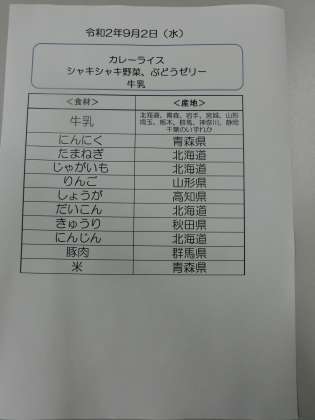 令和2年9月2日（水）
カレーライス
シャキシャキ野菜、ぶどうゼリー
牛乳
＜食材＞ ＜産地＞
牛乳 北海道、青森、岩手、宮城、山形
埼玉、栃木、群馬、神奈川、静岡
千葉のいずれか
にんにく 青森県
たまねぎ 北海道
じゃがいも 北海道
りんご 山形県
しょうが 高知県
だいこん 北海道
きゅうり 秋田県
にんじん 北海道
豚肉 群馬県
米 青森県